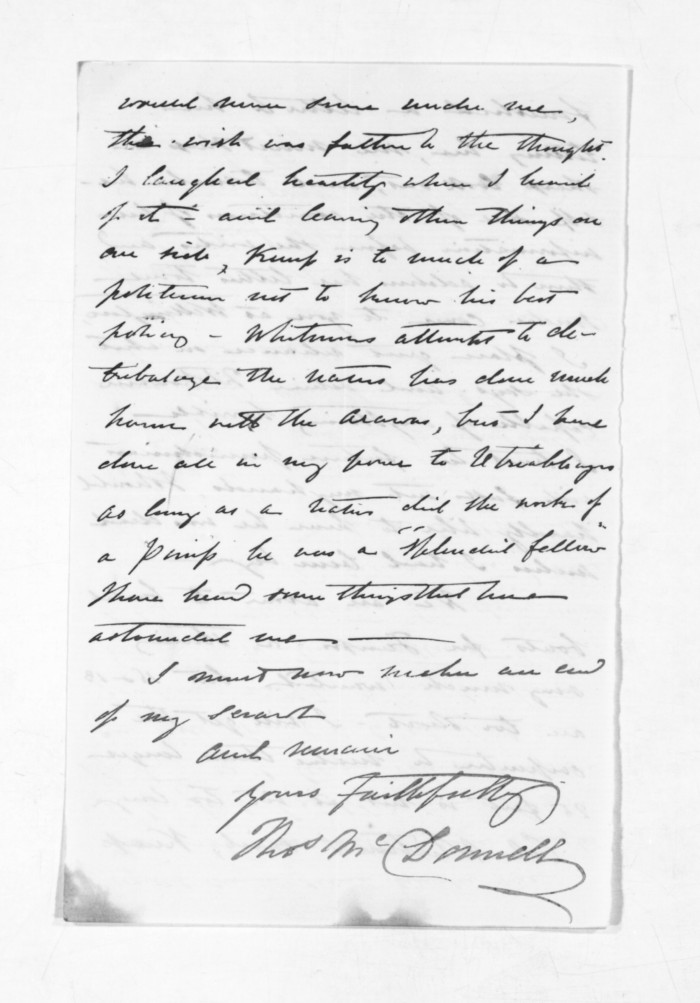 would never serve under me,
the wish was father to the thought.
I laughed heartily when I heard
of it - and leaving other things on
one side, Kemp is to much of a
politician not to know his best
policy - Whitmores attempts to de-
tribalage the natives has done much
harm with the Arawas, but I have
done all in my power to
as long as a native did the work of
a Pimp he was a "splendid fellow"
I have heard some things that have
astounded me -
I must now make an end
of my scrawl
and remain
Yours Faithfully
Thos McDonnell